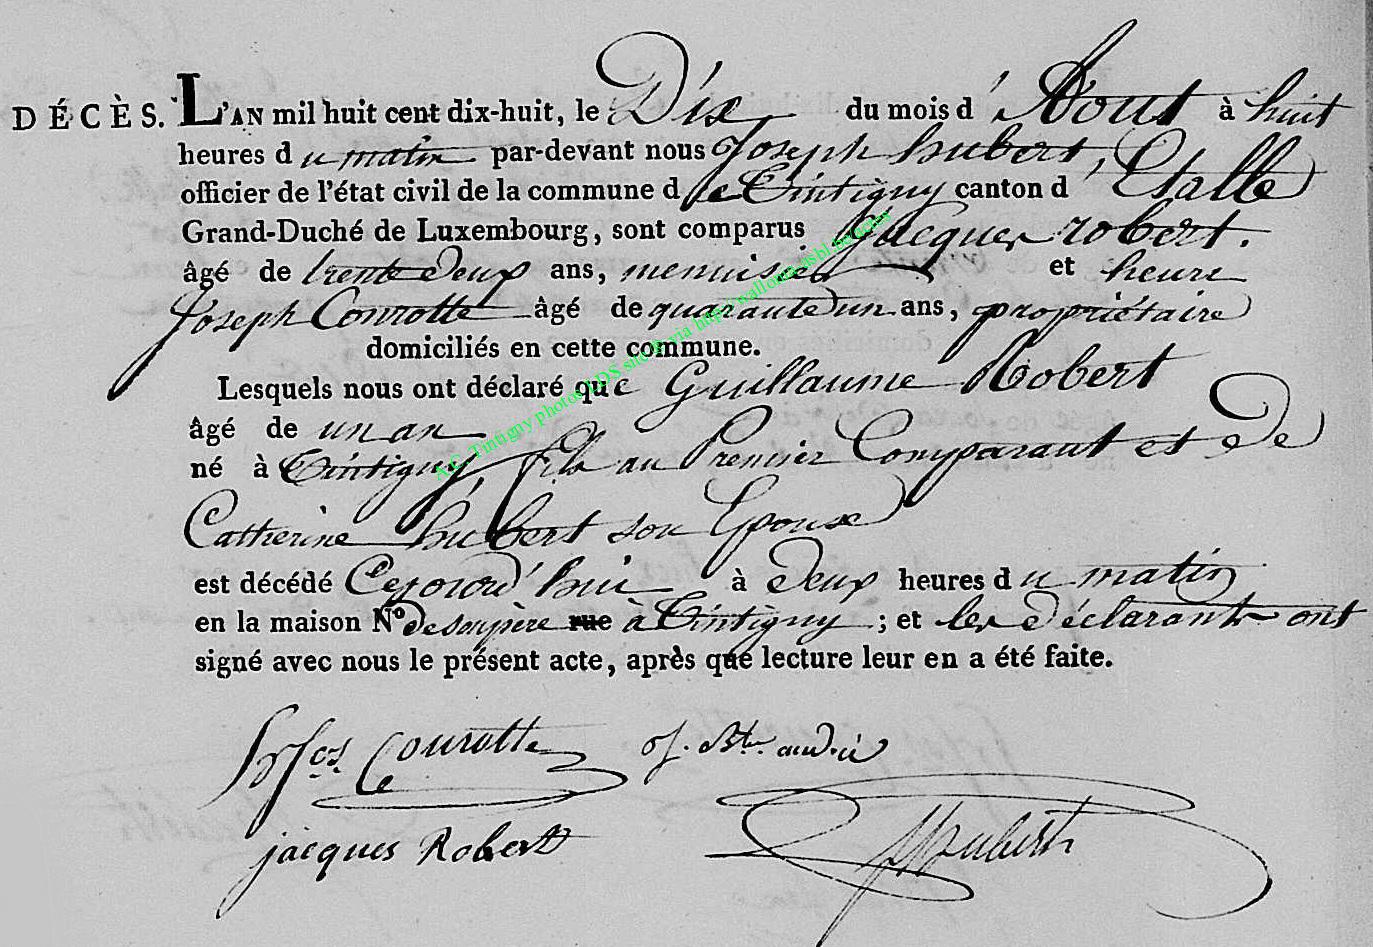 DÉCÈS. L'AN mil huit cent dix-huit, le Dix du mois d' Aout à huit
heures du matin par-devant nous Joseph hubert,
officier de l'état civil de la commune de Tintigny canton d' Etalle
Grand-Duché de Luxembourg, sont comparus Jacques robert.
âgé de trente deux ans, menuisier et henri
Joseph Conrotte âgé de quarante un ans, propriétaire
domiciliés en cette commune.
Lesquels nous ont déclaré que Guillaume Robert
âgé de un an
né à Tintigny, fils au Premier Comparant et de
Catherine hubert son Epouse
est décédé Cejourd'hui à deux heures du matin
en la maison No de son père rue à Tintigny ; et les déclarants ont
signé avec nous le présent acte, après que lecture leur en a été faite.
Conrotte
jacques Robert
Hubert
A.C. Tintigny photos LDS site © via http:/wallonia-asbl.be/actes